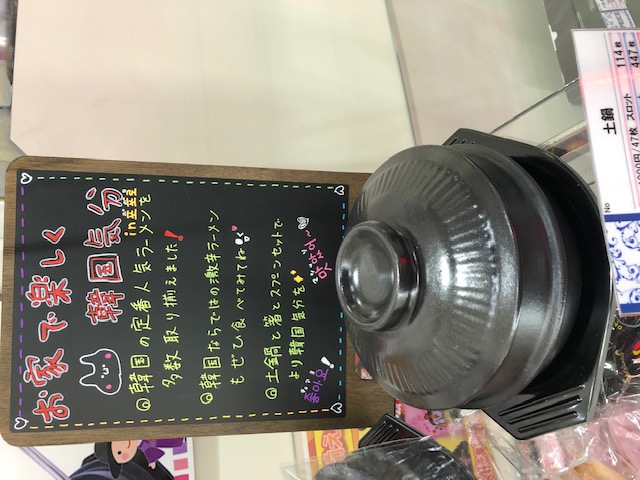 お家で楽しく
韓国気分
in 韓国
◎韓国の定番人気ラーメンを
多数取り揃えました!
◎韓国ならではの激辛ラーメン
もぜひ食べてみてね
◎土鍋と箸とスプーンセットで
より韓国気分を
좋아요!
맛있어~
No
土鍋
114枚
/47枚 スロット 447枚